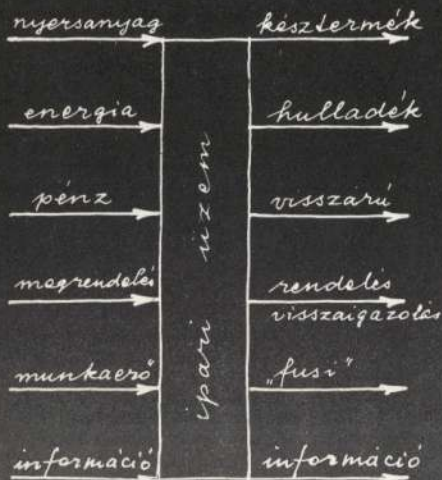 nyersanyag
energia
pénz
megrendelés
munkaerő
információ
ipari üzem
késztermék
hulladék
visszárú
rendelés
visszaigazolás
„fusi”
információ